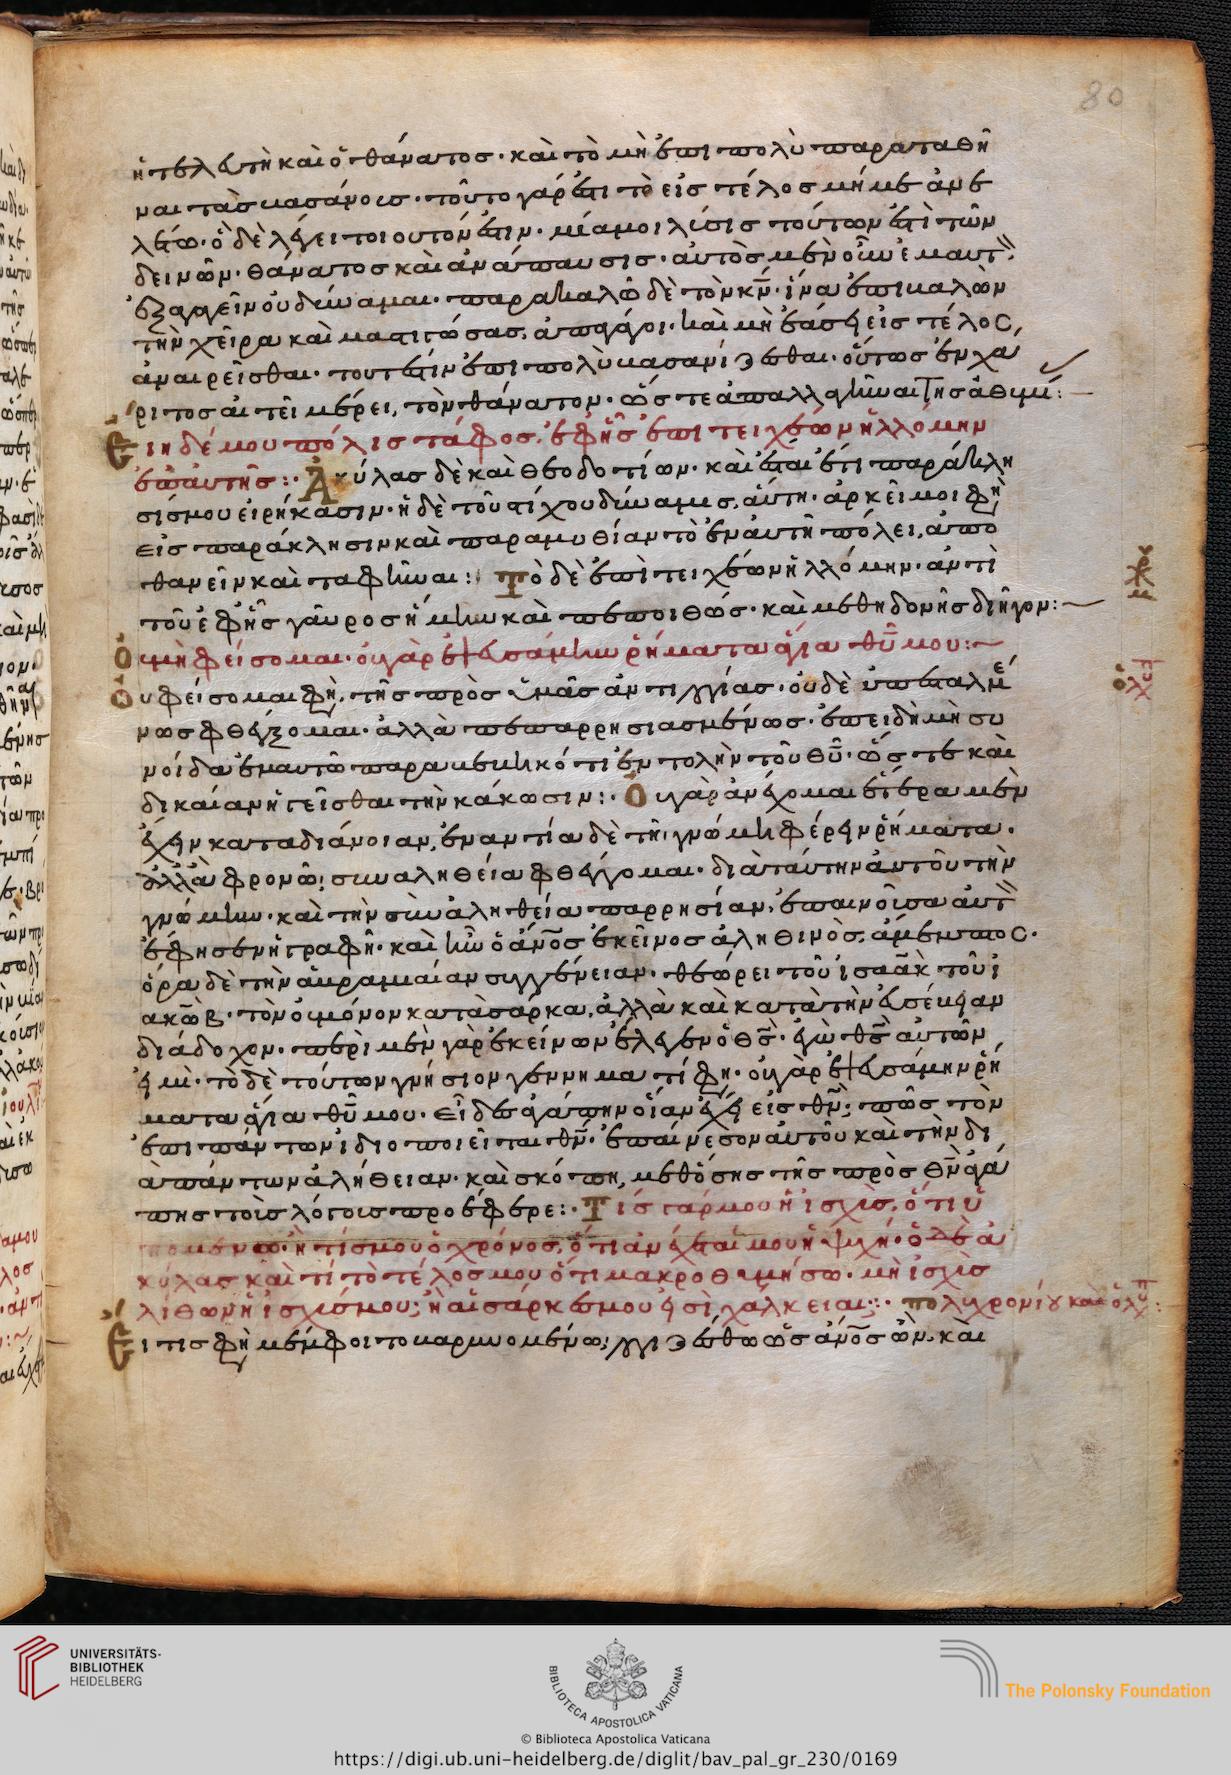 80
ἡ τελευτὴ καὶ ὁ θάνατος· καὶ τὸ μὴ ἐπι πολὺ παραταθῆ
ναι τὰς βασάνους· τοῦτο γάρ ἐστι τὸ εἰς τέλος μή με ἀνε
λέτω· ὃ δὲ λέγει τοιοῦτόν ἐστιν· μία μοι λύσις τούτων ἐστὶ τῶν
δεινῶν· θάνατος καὶ ἀνάπαυσις· αὐτὸς μὲν οὖν ἐμαυτ
ἐξαγαγεῖν οὐ δύναμαι· παρακαλῶ δὲ τὸν κν· ἵνα ἐπιβαλὼν
τὴν χεῖρα καὶ μαστιγώσας, ἀπαγάγοι· καὶ μὴ ἐάσῃ εἰς τέλος,
ἀναιρεῖσθαι· τουτέστιν ἐπι πολὺ βασανίζεσθαι· οὕτως ἐν χά
ριτος αἰτεῖ μέρει, τὸν θάνατον· ὥστε ἀπαλλαγῆναι τῆς ἀθυμί:
Εἴη δέ μου πόλις τάφος, ἐφ ἧς ἐπι τειχέων ἡλλόμην
ἐπ αὐτῆς: Ἀκύλας δὲ καὶ Θεοδοτίων· καὶ ἔσται ἔτι παράκλη
σίς μου εἰρήκασιν· ἡ δὲ τοῦ στίχου δύναμις, αὕτη· ἀρκεῖ μοι φη
εἰς παράκλησιν καὶ παραμυθίαν τὸ ἐν αὐτῇ πόλει, ἀπο
θανεῖν καὶ ταφῆναι: Τὸ δὲ ἐπὶ τειχέων ἡλλόμην· ἀντὶ
τοῦ ἐφ ἧς γαῦρος ἤμην καὶ πεποιθώς· καὶ μεθ ηδονῆς διῆγον:
Ὀυ μὴ φείσομαι· οὐ γὰρ ἐψευσάμην ῥήματα ἅγια θῦ μου:
Οὐ φείσομαι φη, τῆς πρὸς ὑμᾶς ἀντιλογίας· οὐδὲ ὑπεσταλμέ
νως φθέγξομαι· ἀλλὰ πεπαρρησιασμένως· ἐπειδὴ μὴ συ
νοίδα ἐμαυτῶ παραβεβηκότι ἐντολὴν τοῦ θῦ· ὥστε καὶ
δικαίαν ἡγεῖσθαι τὴν κάκωσιν: Οὐ γὰρ ἀνέχομαι ἕτερα μὲν
ἔχειν κατα διάνοιαν, ἐναντία δὲ τῆ γνώμη φέρειν ῥήματα·
ἀλλ ἃ φρονῶ, συν αληθεία φθέγγομαι· διὰ ταύτην αὐτοῦ τὴν
γνώμην· καὶ τὴν σὺν ἀληθεία παρρησίαν, ἐπαινοῦσα αὐτ
ἔφησεν ἡ γραφή· καὶ ἦν ὁ ἄνος ἐκεῖνος ἀληθινὸς, ἄμεμπτος·
ὅρα δὲ τὴν ἀβραμιαίαν συγγένειαν· θεώρει τοῦ ἰσαὰκ τοῦ ἰ
ακὼβ· τὸν οὐ μόνον κατὰ σάρκα, ἀλλὰ καὶ κατὰ τὴν εὐσέβειαν
διάδοχον· περὶ μὲν γὰρ ἐκείνων ἔλεγεν ὁ θς· ἐγὼ θς αὐτῶν
εἰμὶ· τὸ δὲ τούτων γνήσιον γέννημα τί φη· οὐ γὰρ ἐψευσάμην ῥή
ματα ἅγια θῦ μου· Εἶδες ἀγάπην οἵαν ἔχει εἰς θν; πῶς τὸν
ἐπι πάντων ἰδιοποιεῖται θν· ἐπαίνεσον αὐτοῦ καὶ τὴν δι
ὰ πάντων ἀλήθειαν· καὶ σκόπει, μεθ ὅσης τῆς πρὸς θν ἀγά
πης τοὺς λόγους προσέφερε: Τίς γάρ μου ἡ ἰσχὺς, ὅτι ὑ
πομένω· ἢ τίς μου ὁ χρόνος, ὅτι ἀνέχεταί μου ἡ ψυχή· ὁ δὲ ἀ
κύλας καὶ τί τὸ τέλος μου ὅτι μακροθυμήσω· μὴ ἰσχὺς
λίθων ἡ ἰσχύς μου; ἢ αἱ σάρκες μου εἰσὶ χάλκειαι;: πολυχρονίου καὶ ὀλυμπ:
Εἴ τις φη μέμφοιτο καρυνομένω, λογιζέσθω ὡς ἄνος ὢν· καὶ
UNIVERSITÄTS-
BIBLIOTHEK
HEIDELBERG
BIBLIOTECA APOSTOLICA VATICANA
© Biblioteca Apostolica Vaticana
The Polonsky Foundation
https://digi.ub.uni-heidelberg.de/diglit/bav_pal_gr_230/0169